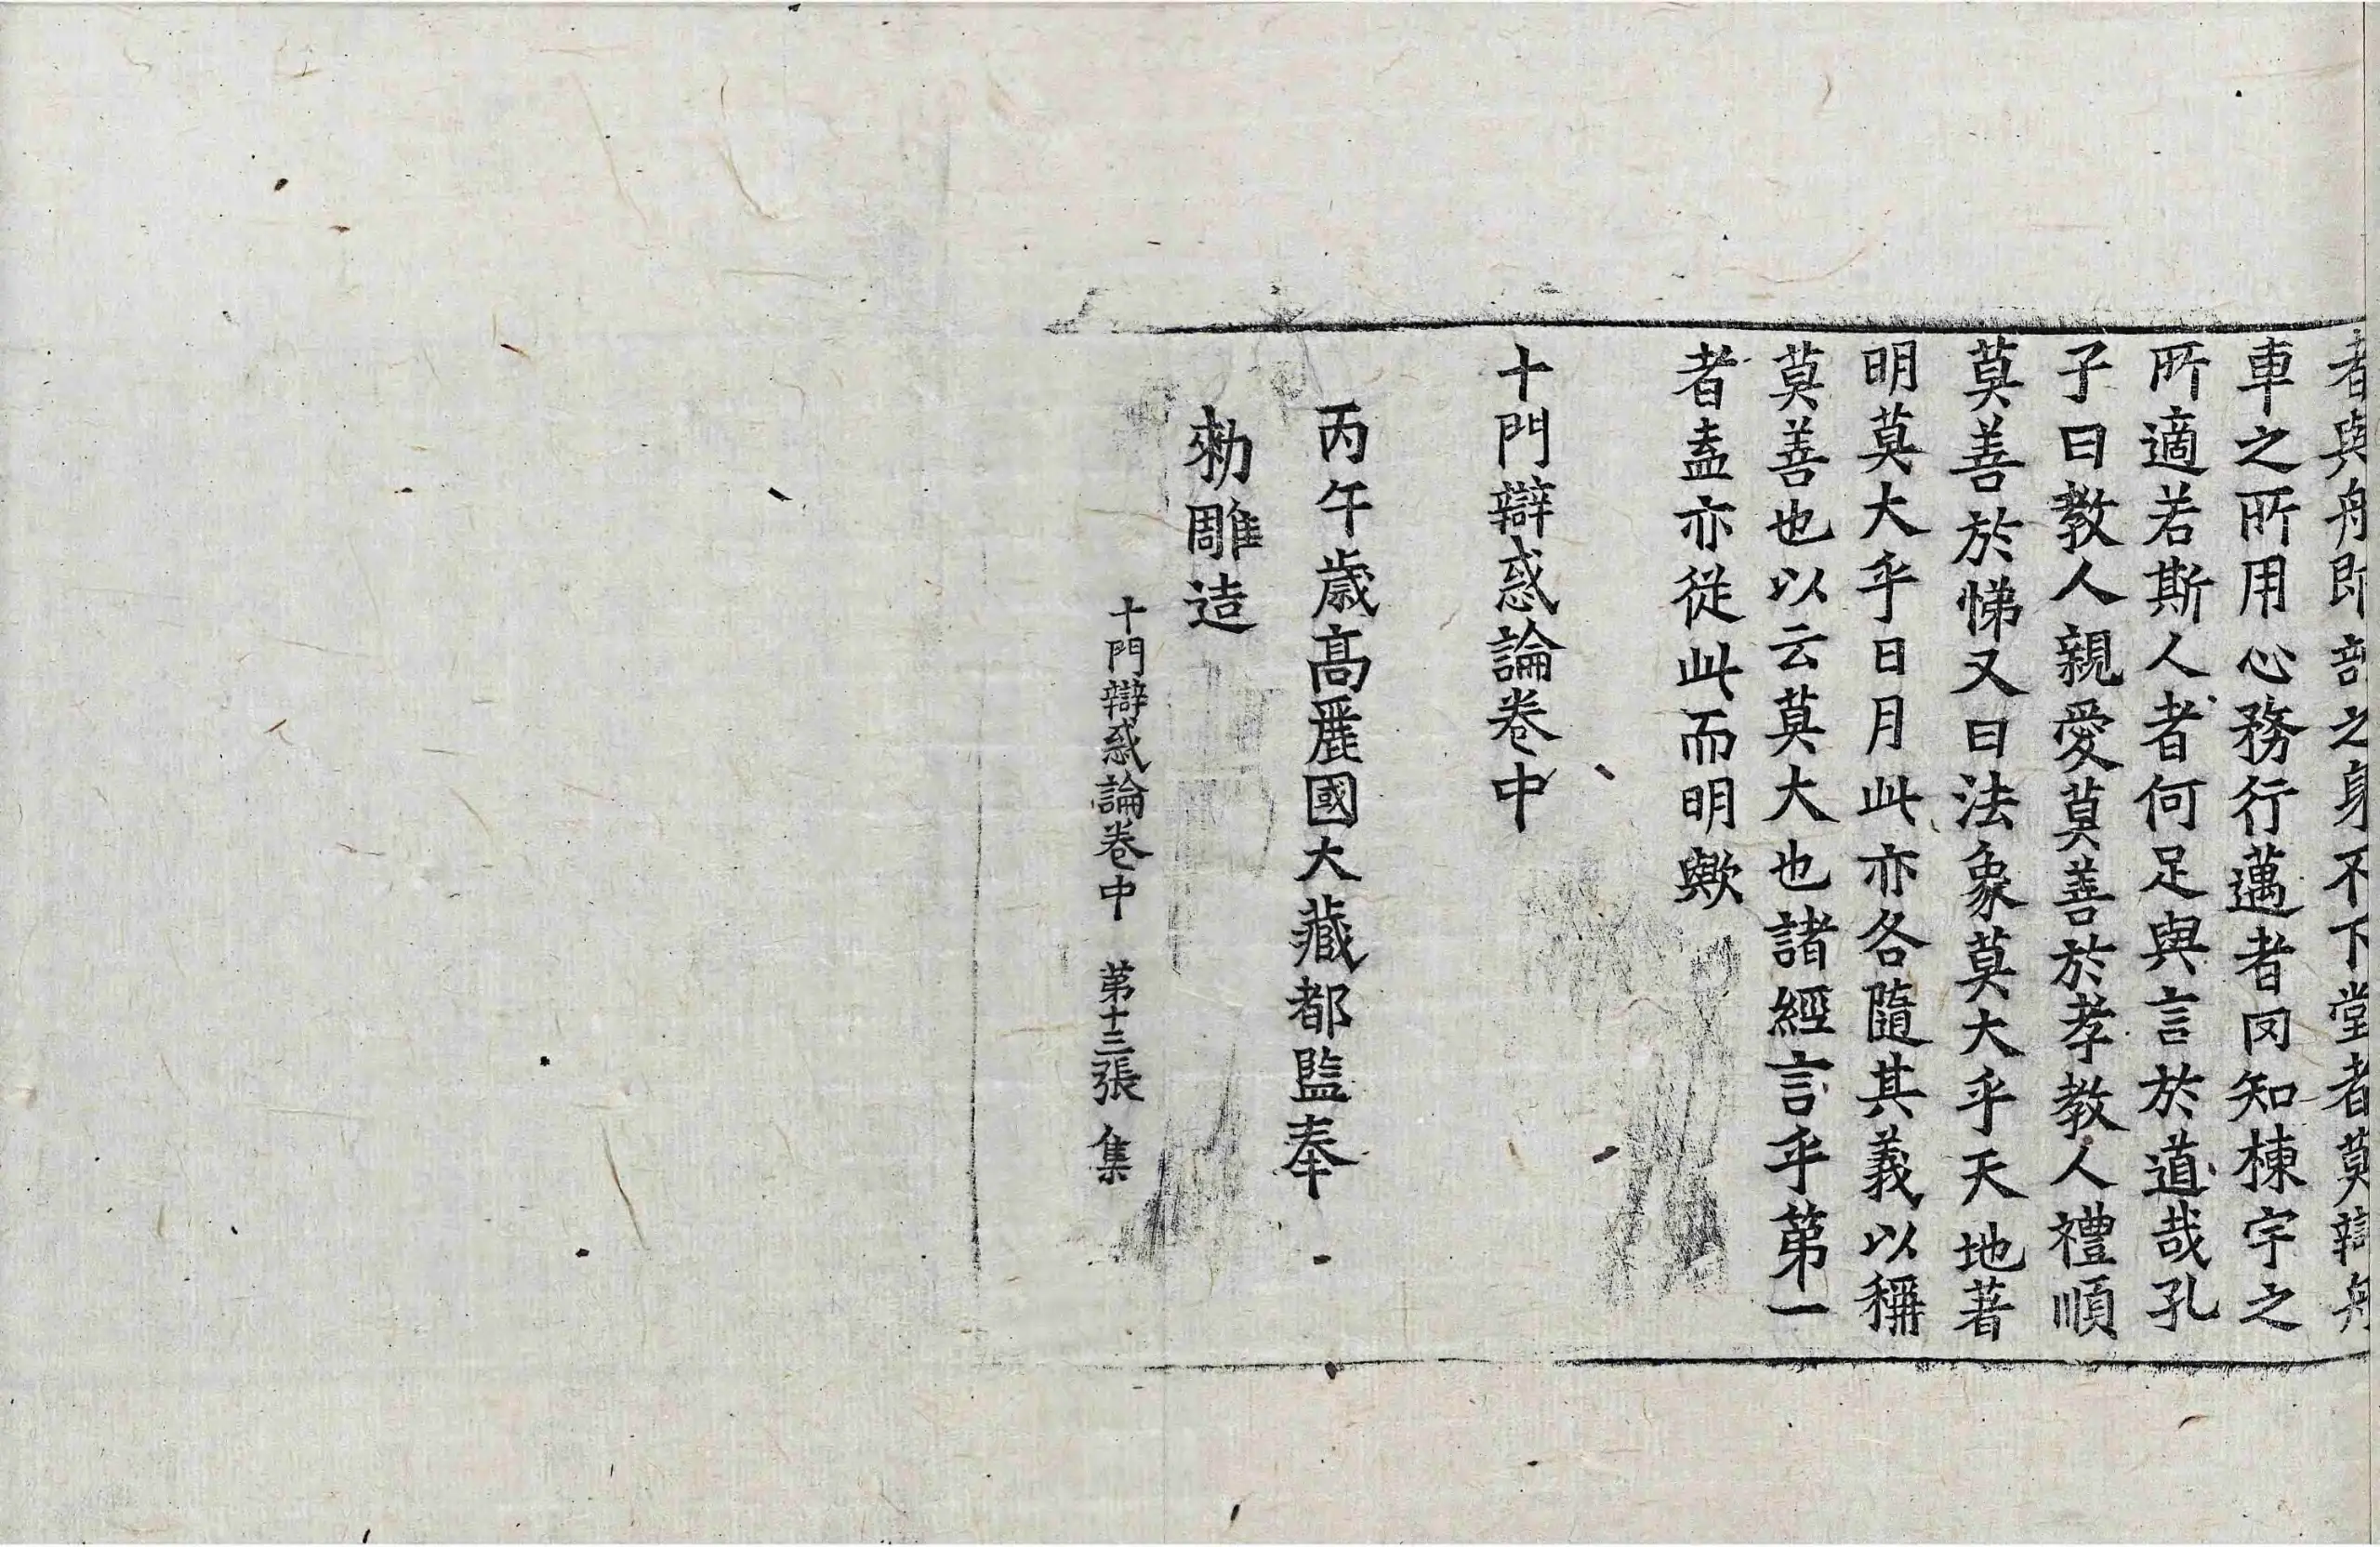 者與舟即剖之身不下堂者莫辯舟
車之所用心務行邁者罔知棟宇之
所適若斯人者何足與言於道哉孔
子曰教人親愛莫善於孝教人禮順
莫善於悌又曰法象莫大乎天地著
明莫大乎日月此亦各隨其義以稱
莫善也以云莫大也諸經言乎第一
者盍亦從此而明歟
十門辯惑論卷中
丙午歲高麗國大藏都監奉
勑雕造
十門辯惑論卷中 第十三張 集